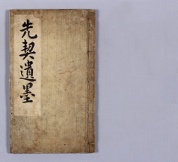 先契遺墨